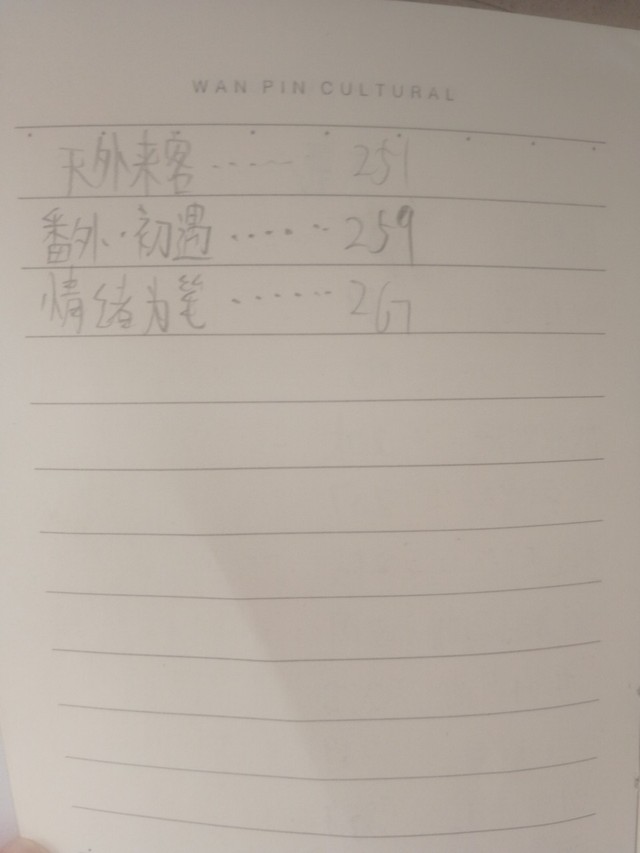 WAN PIN CULTURAL
天外来客…… 251
番外·初遇…… 259
情绪为笔…… 267